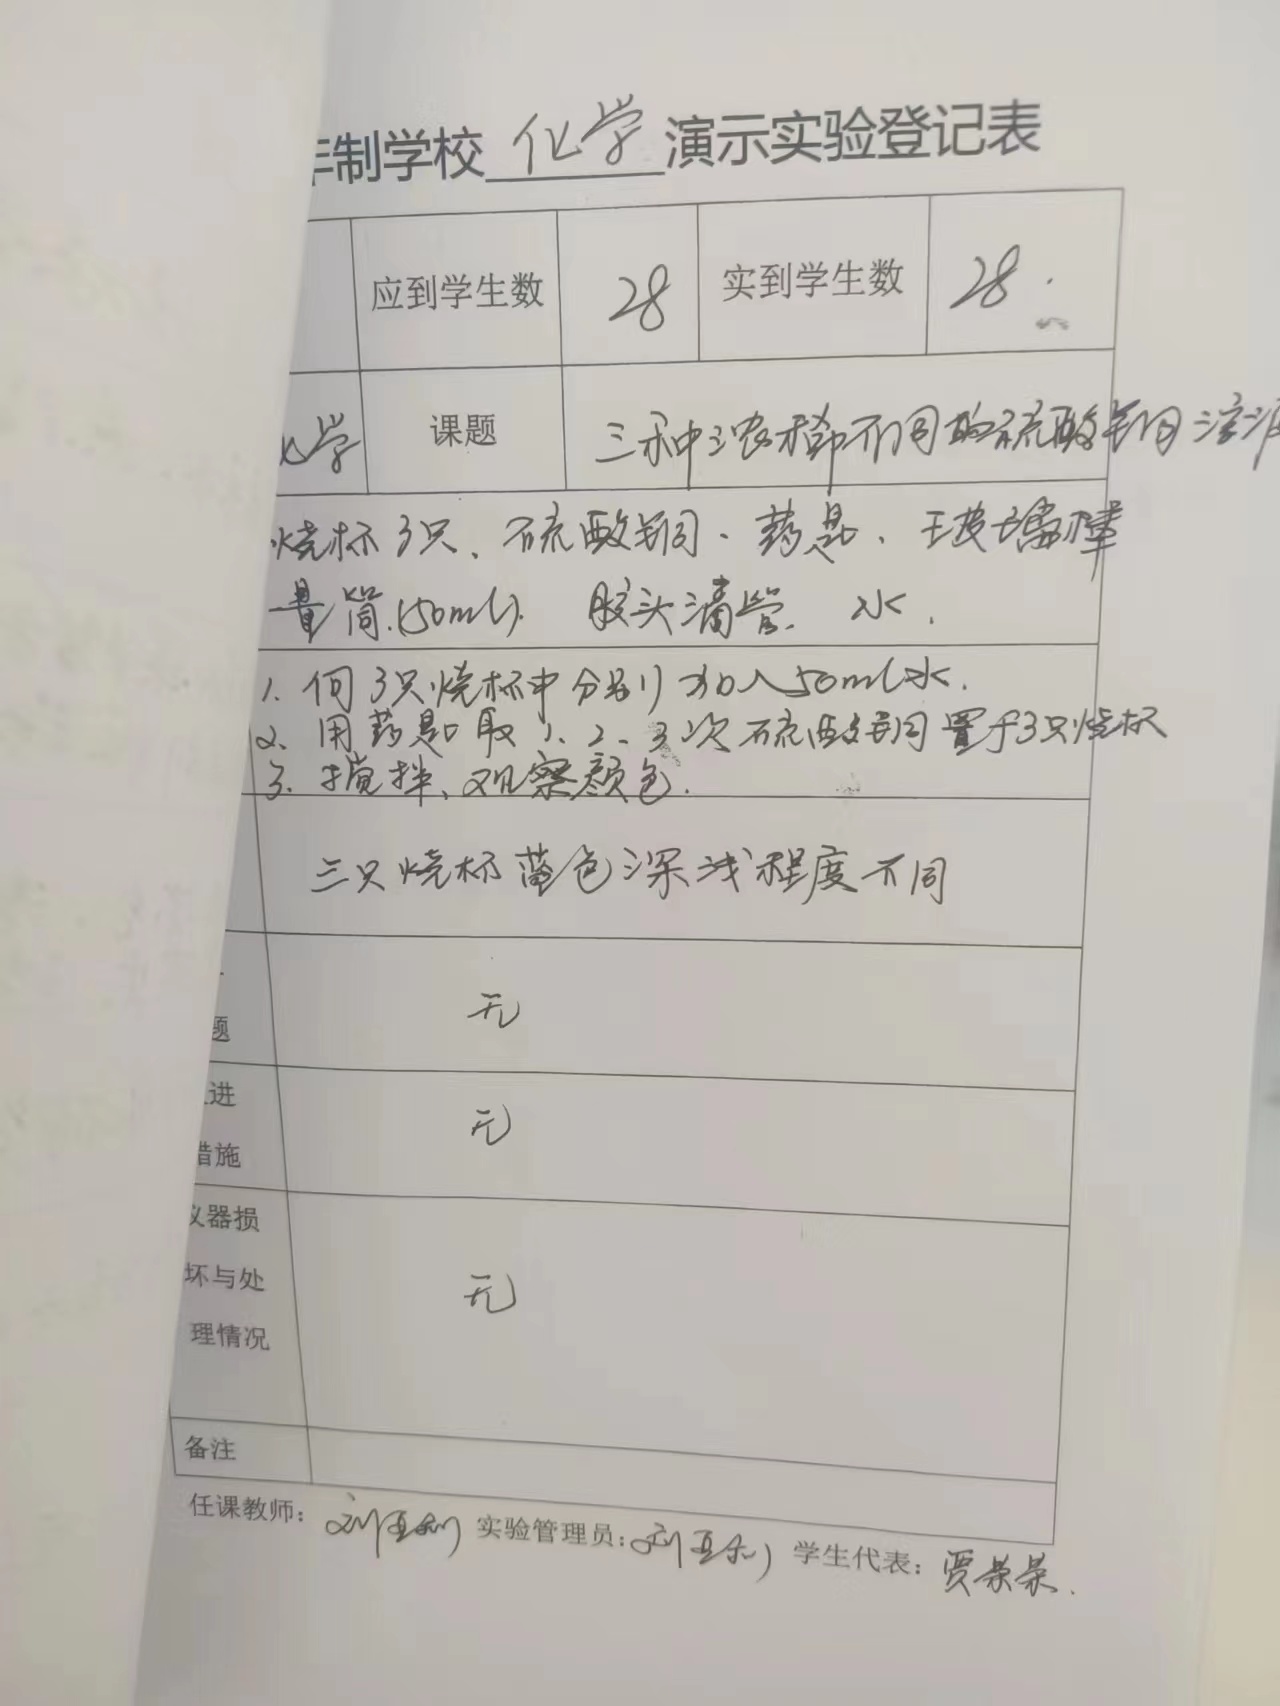 年制学校 化学 演示实验登记表
应到学生数 28 实到学生数 28.
化学 课题 三种浓稀不同的硫酸铜溶液
烧杯3只、硫酸铜、药匙、玻璃棒
量筒(50ml). 胶头滴管、水.
1. 向3只烧杯中分别加入50ml水.
2. 用药匙取1、2、3次硫酸铜置于3只烧杯
3. 搅拌、观察颜色.
三只烧杯蓝色深浅程度不同
题 无
进
措施 无
仪器损
坏与处 无
理情况
备注
任课教师: 刘亚利 实验管理员: 刘亚利 学生代表: 贾荣荣.